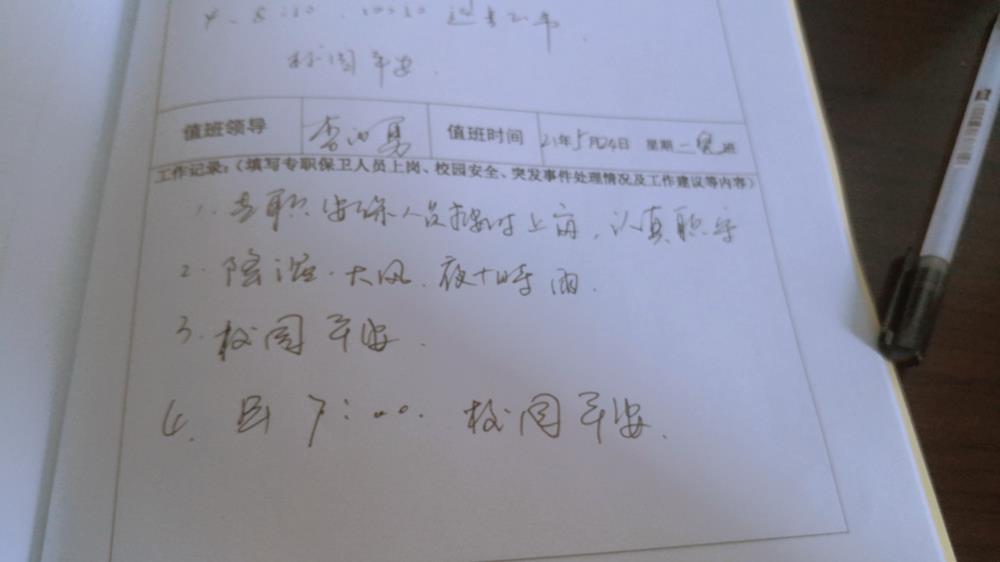 4、8:30、10:30
校园平安.
值班领导 李 勇 值班时间 21年5月24日 星期一 班
工作记录:(填写专职保卫人员上岗、校园安全、突发事件处理情况及工作建议等内容)
1、专职安保人员按时上岗,认真职守
2. 降温.大风.夜十时雨.
3. 校园平安.
4. 早7:00. 校园平安.